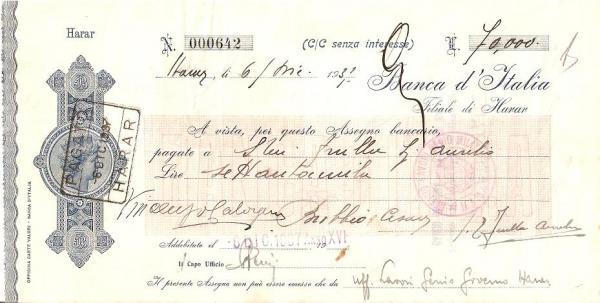 Harar
N. 000642 (C/C senza interesse) £. 70,000.-
Harar, li 6/ Dic. 1937
Banca d'Italia
Filiale di Harar
A vista, per questo Assegno bancario,
pagate a Aurelio
Lire settantamila
Addebitato il 6 DIC. 1937 XVI
Il Capo Ufficio
Il presente Assegno non può essere emesso che da uff. Lavori Genio Governo Harar
PAGATO
6 DIC. 1937
HARAR
OFFICINA CARTE VALORI - BANCA D'ITALIA